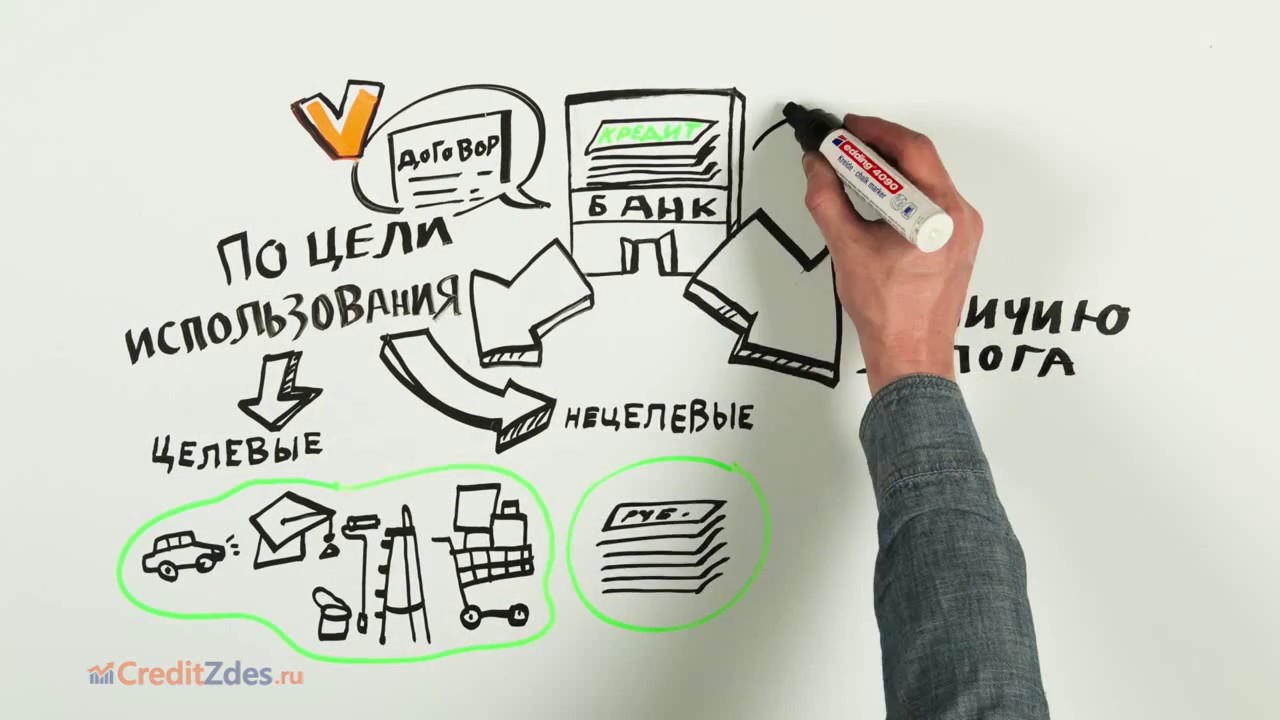 ДОГОВОР
КРЕДИТ
БАНК
ПО ЦЕЛИ
ИСПОЛЬЗОВАНИЯ
ИЧИЮ
ЛОГА
ЦЕЛЕВЫЕ
НЕЦЕЛЕВЫЕ
РУБ.
edding 4090
Kreide - chalk marker
CreditZdes.ru